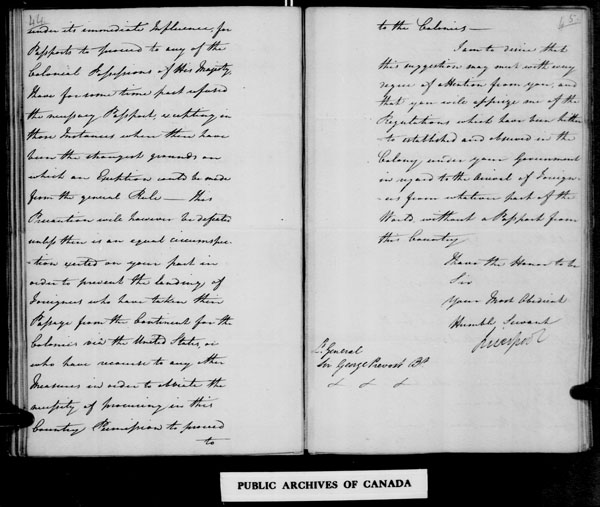 44
under its immediate Influence, for
Passports to proceed to any of the
Colonial Possessions of His Majesty,
I have for some time past refused
the necessary Passport, excepting in
those Instances where there have
been the strongest grounds on
which an Exception could be made
from the general Rule — this
Precaution will however be defeated
unless there is an equal circumspec-
-tion exerted on your part in
order to prevent the landing of
Foreigners who have taken their
Passage from the Continent for the
Colonies via the United States, or
who have recourse to any other
Measures in order to obviate the
necessity of procuring in this
Country Permission to proceed
to
45
to the Colonies —
I am to desire that
this suggestion may meet with every
degree of attention from you, and
that you will apprize me of the
Regulations which have been hither
-to established and observed in the
Colony under your Government
in regard to the arrival of Foreign-
-ers from whatever part of the
World, without a Passport from
this Country
I have the Honor to be
Sir
Your Most Obedient
Humble Servant
Liverpool
Lt. General
Sir George Prevost Bt.
PUBLIC ARCHIVES OF CANADA